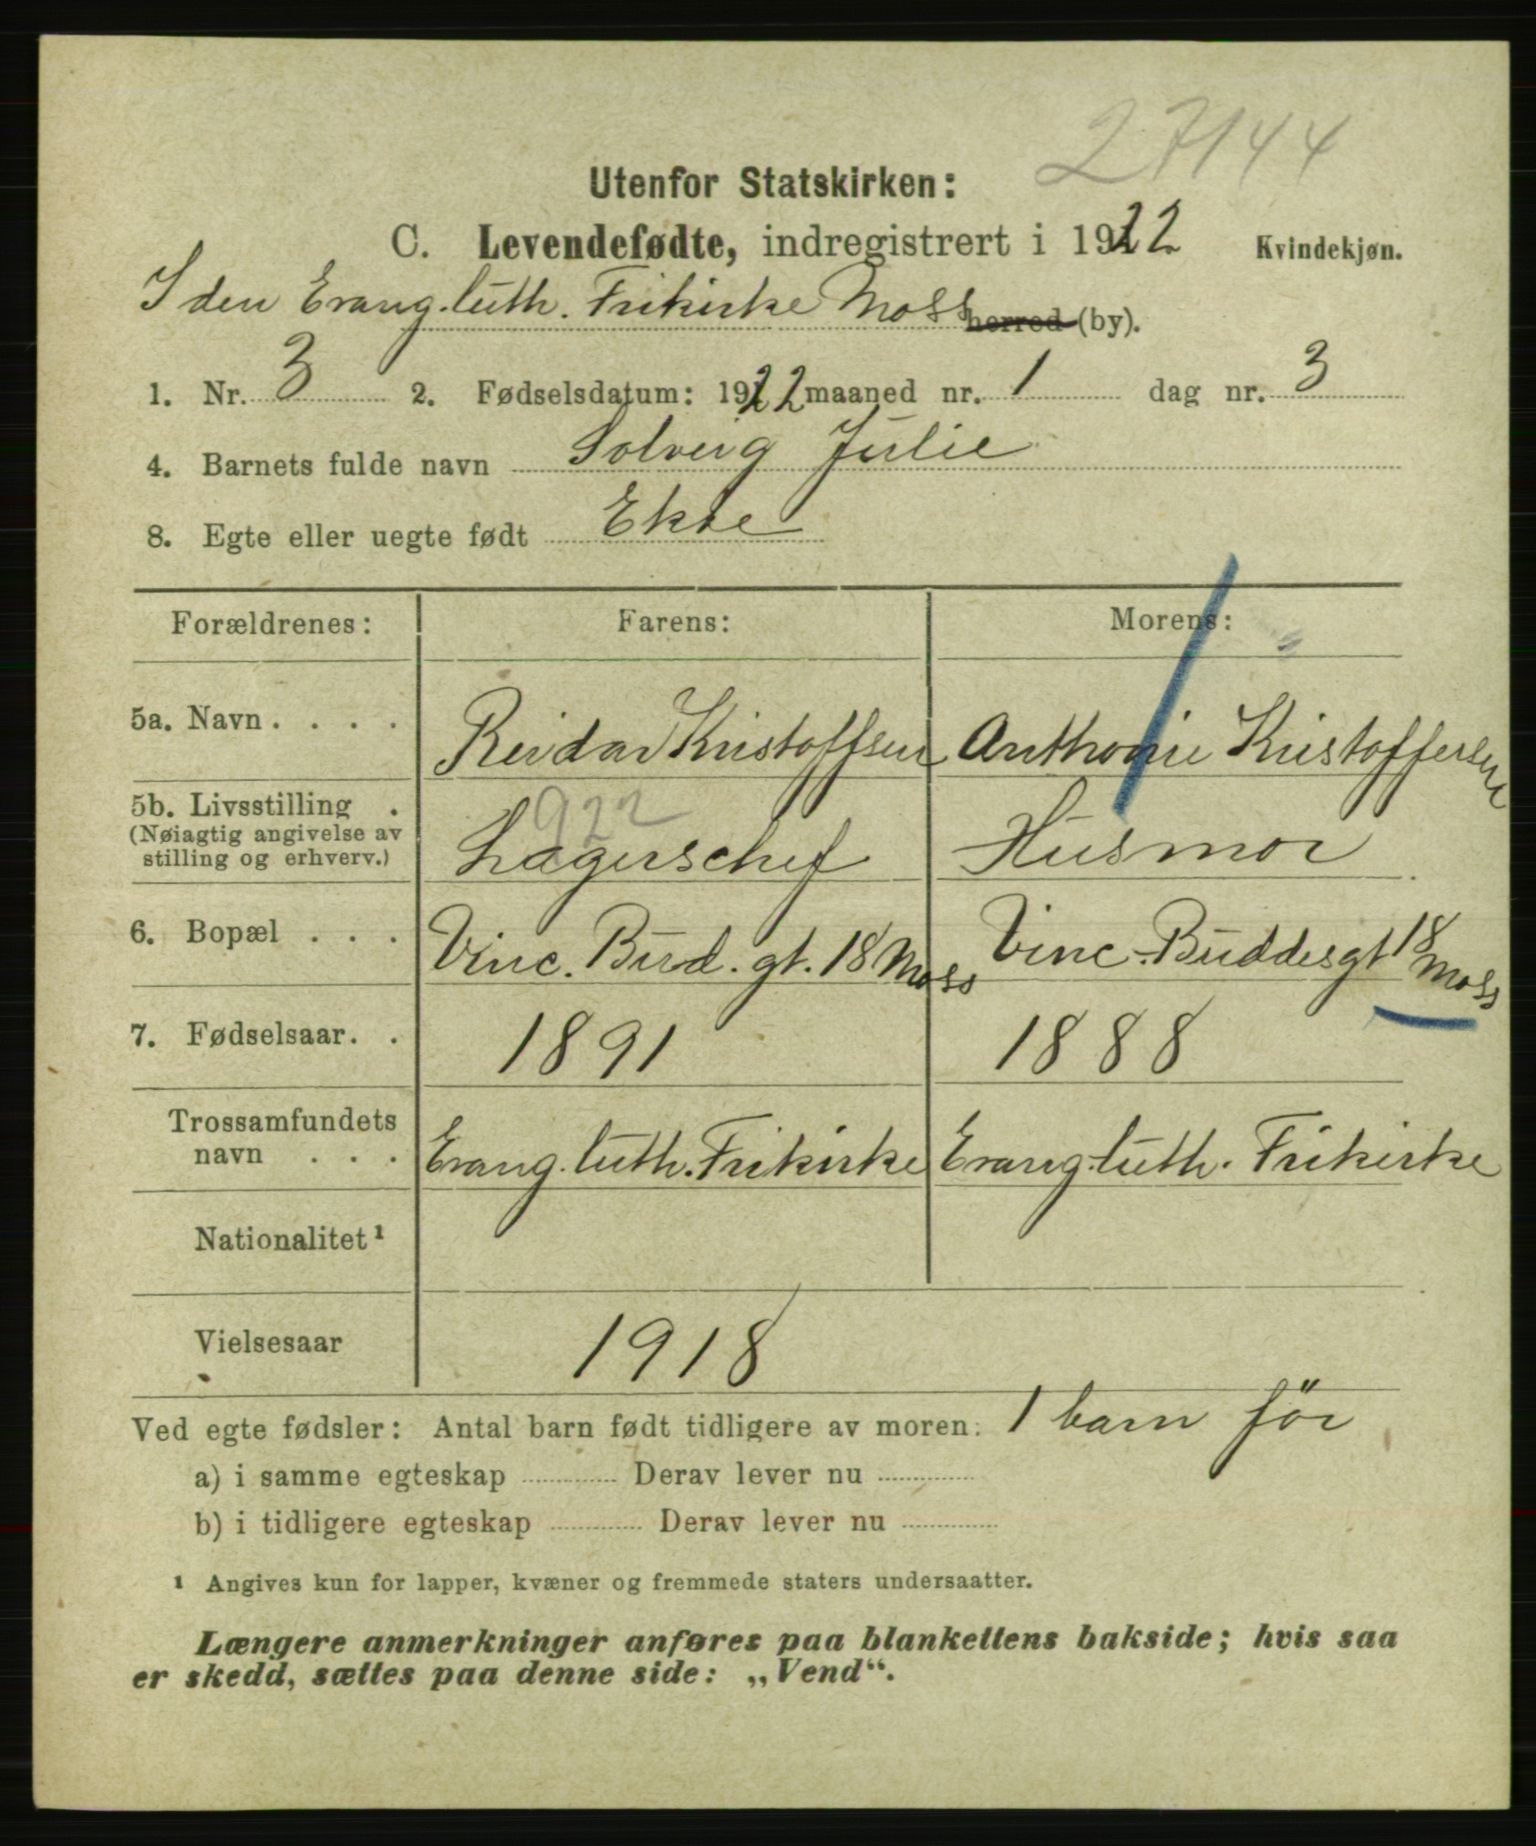 27144
Utenfor Statskirken:
C. Levendefødte, indregistrert i 1922 Kvindekjøn.
I den Evang. luth. Frikirke Moss herred (by).
1. Nr. 3 2. Fødselsdatum: 1922 maaned nr. 1 dag nr. 3
4. Barnets fulde navn Solveig Julie
8. Egte eller uegte født Ekte
Forældrenes: Farens: Morens:
5a. Navn . . . . Reidar Kristoffsen Anthonie Kristoffersen
5b. Livsstilling .
(Nøiagtig angivelse av
stilling og erhverv.)
922
Lagerschef Husmor
6. Bopæl . . . Vinc. Bud. gt. 18 Moss Vinc. Buddesgt 18 Moss
7. Fødselsaar. . 1891 1888
Trossamfundets
navn . . . Evang. luth. Frikirke Evang. luth. Frikirke
Nationalitet¹
Vielsesaar 1918
Ved egte fødsler: Antal barn født tidligere av moren: 1 barn før
a) i samme egteskap Derav lever nu
b) i tidligere egteskap Derav lever nu
¹ Angives kun for lapper, kvæner og fremmede staters undersaatter.
Længere anmerkninger anføres paa blankettens bakside; hvis saa
er skedd, sættes paa denne side: „Vend“.